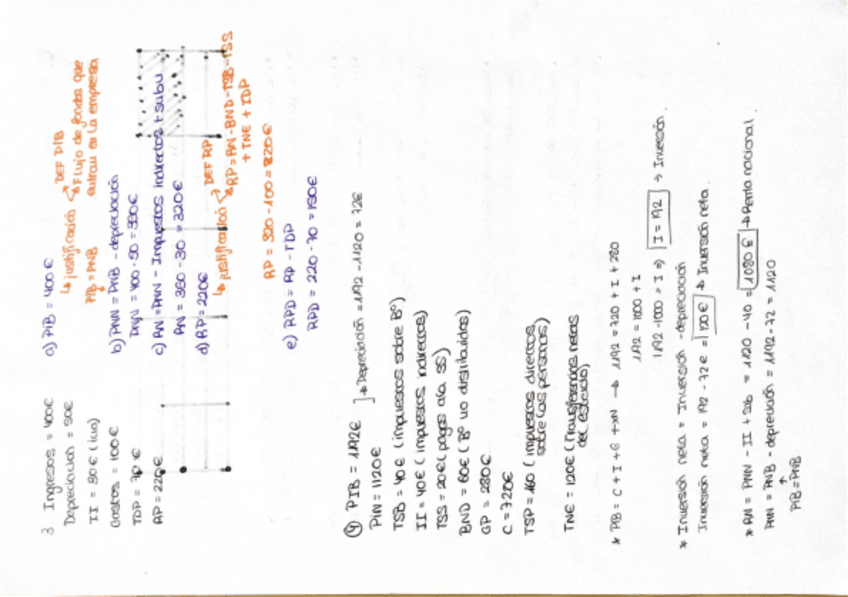 3 Ingresos = 400€
Depreciación = 50€
II = 30€ (iva)
Gastos = 100€
TDP = 70€
RP = 220€
a) PIB = 400€
↳ justificación
DEF PIB
Flujo de fondos que entran en la empresa
PIB = PNB
b) PNN = PNB - depreciación
PNN = 400 - 50 = 350€
c) RN = PNN - Impuestos indirectos + subv
RN = 350 - 30 = 320€
d) RP = 220€
↳ justificación
DEF RP
RP = RN - BND - TSB - TSS
+ TNE + IDP
RP = 320 - 100 = 220€
e) RPD = RP - TDP
RPD = 220 - 70 = 150€
4) PIB = 1192€
PIN = 1120€
→ Depreciación = 1192 - 1120 = 72€
TSB = 40€ (impuestos sobre Bº)
II = 40€ (impuestos indirectos)
TSS = 20€ (pagos a la SS)
BND = 60€ (Bº no distribuidos)
GP = 280€
C = 720€
TSP = 160 (impuestos directos sobre las personas)
TNE = 120€ (Transferencias netas del estado)
* PIB = C + I + G + XN → 1192 = 720 + I + 280
1192 = 1000 + I
1192 - 1000 = I ⇒ I = 192 → Inversión.
* Inversión neta = Inversión - depreciación
Inversión neta = 192 - 72€ = 120€ → Inversión neta.
* RN = PNN - II + Sub = 1120 - 40 = 1080€ → Renta nacional.
PNN = PNB - depreciación = 1192 - 72 = 1120
↑
PIB = PNB